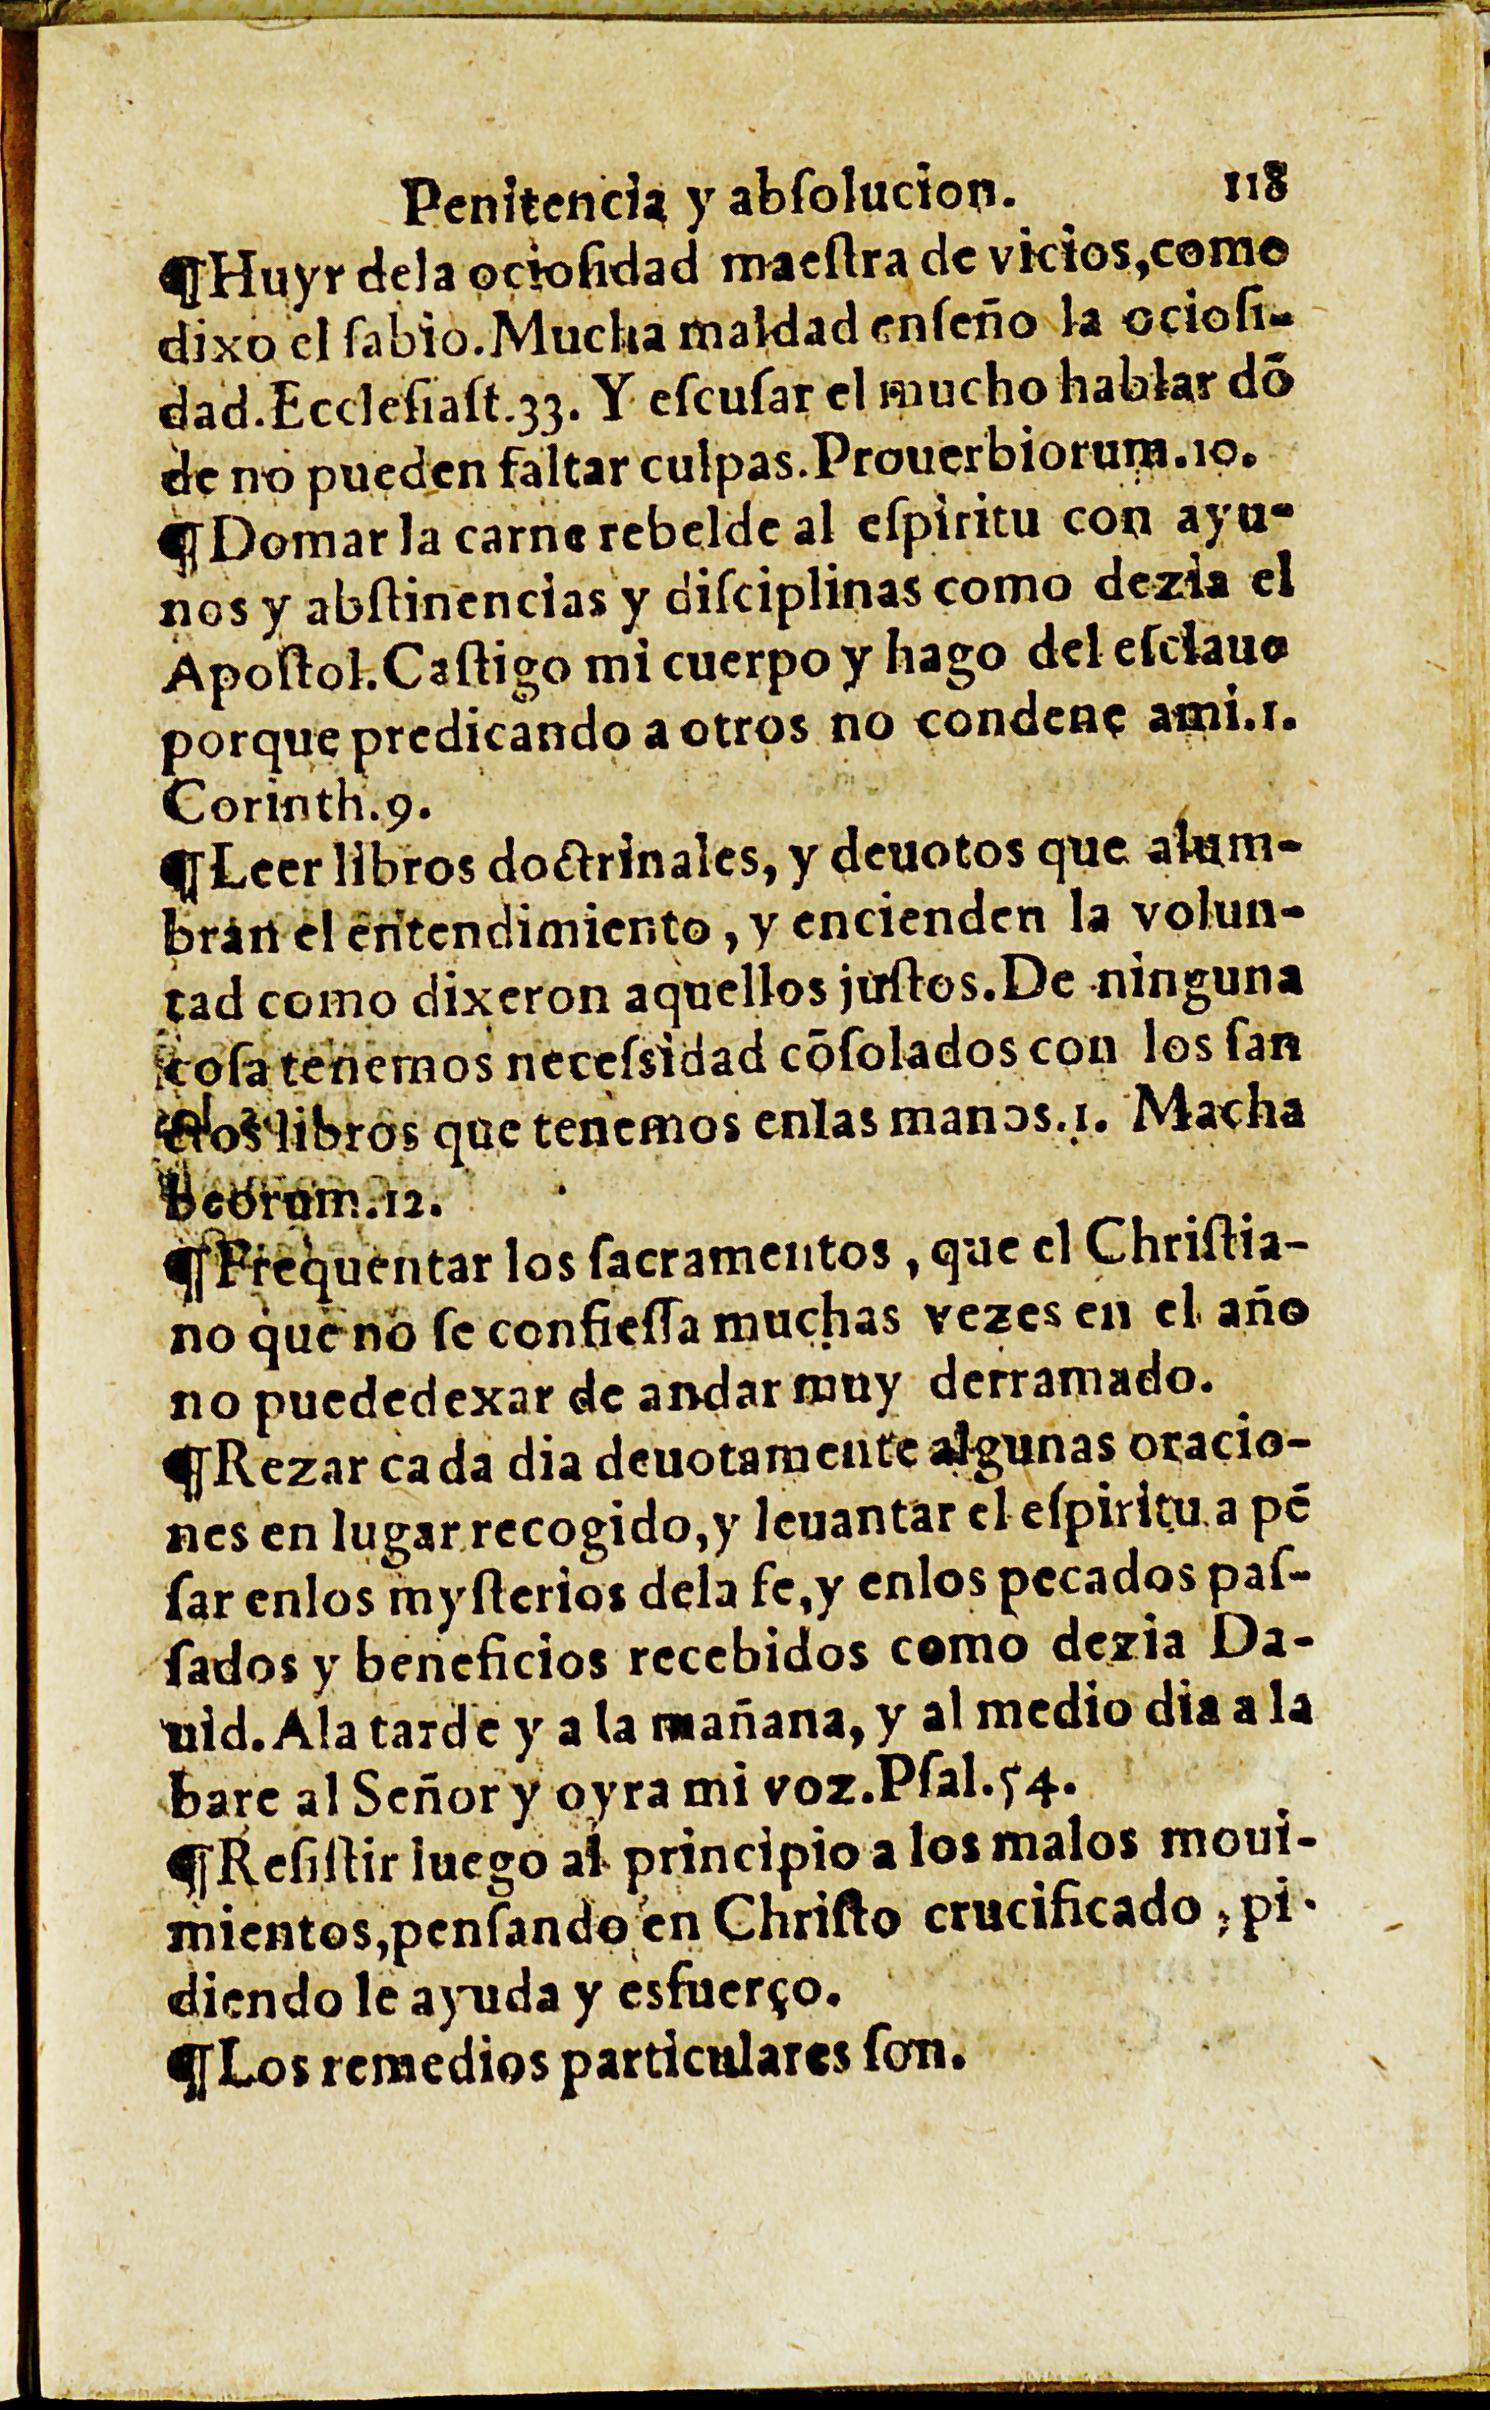 Penitencia y abſolucion. 118
¶Huyr dela ocioſidad maeſtra de vicios,como
dixo el ſabio.Mucha maldad enſeño la ocioſi-
dad.Eccleſiaſt.33. Y eſcuſar el mucho hablar dõ
de no pueden faltar culpas.Prouerbiorum.10.
¶Domar la carne rebelde al eſpiritu con ayu-
nos y abſtinencias y diſciplinas como dezia el
Apoſtol.Caſtigo mi cuerpo y hago del eſclauo
porque predicando a otros no condene ami.1.
Corinth.9.
¶Leer libros doctrinales, y deuotos que alum-
bran el entendimiento, y encienden la volun-
tad como dixeron aquellos juſtos.De ninguna
coſa tenemos neceſsidad cõſolados con los ſan
ctos libros que tenemos enlas manos.1. Macha
beorum.12.
¶Frequentar los ſacramentos, que el Chriſtia-
no que no ſe confieſſa muchas vezes en el año
no puededexar de andar muy derramado.
¶Rezar cada dia deuotamente algunas oracio-
nes en lugar recogido,y leuantar el eſpiritu a pẽ
ſar enlos myſterios dela fe,y enlos pecados paſ-
ſados y beneficios recebidos como dezia Da-
uid.Ala tarde y a la mañana, y al medio dia a la
bare al Señor y oyra mi voz.Pſal.54.
¶Reſiſtir luego al principio a los malos moui-
mientos,penſando en Chriſto crucificado, pi-
diendo le ayuda y esfuerço.
¶Los remedios particulares ſon.